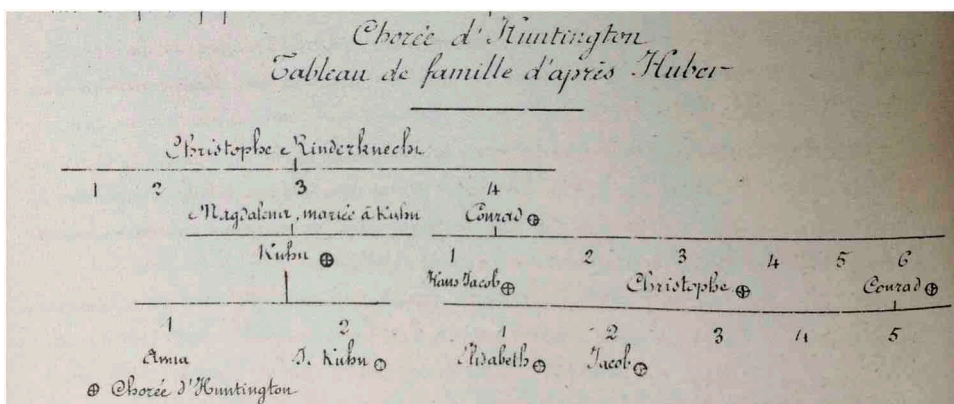 Chorée d'Huntington
Tableau de famille d'après Huber
Christophe Rinderknecht
1 2 3 4
Magdalena, mariée à Kuhn Conrad ⊕
Kuhn ⊕ 1 2 3 4 5 6
Hans Jacob ⊕ Christophe ⊕ Conrad ⊕
1 2 1 2 3 4 5
Anna J. Kuhn ⊕ Elisabeth ⊕ Jacob ⊕
⊕ Chorée d'Huntington